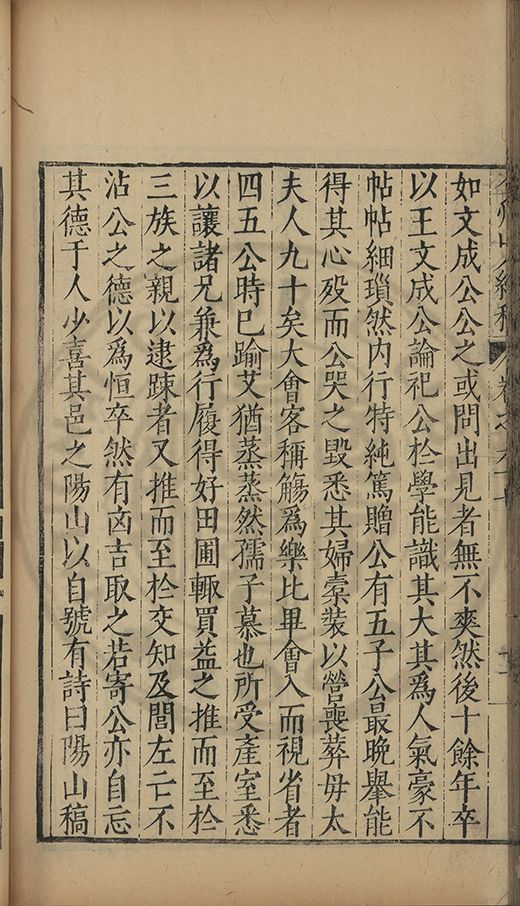 弇州山人續稿 卷之
如文成公公之或問出見者無不爽然後十餘年卒
以王文成公論祀公於學能識其大其爲人氣豪不
帖帖細瑣然内行特純篤贈公有五子公最晚舉能
得其心歿而公哭之毀悉其婦槖裝以營喪葬毋太
夫人九十矣大會客稱觴爲樂比畢會入而視省者
四五公時已踰艾猶蒸蒸然孺子慕也所受產室悉
以讓諸兄兼爲行履得好田圃輙買益之推而至於
三族之親以逮踈者又推而至於交知及閭左亡不
沾公之德以爲恒卒然有凶吉取之若寄公亦自忘
其德于人少喜其邑之陽山以自號有詩曰陽山稿